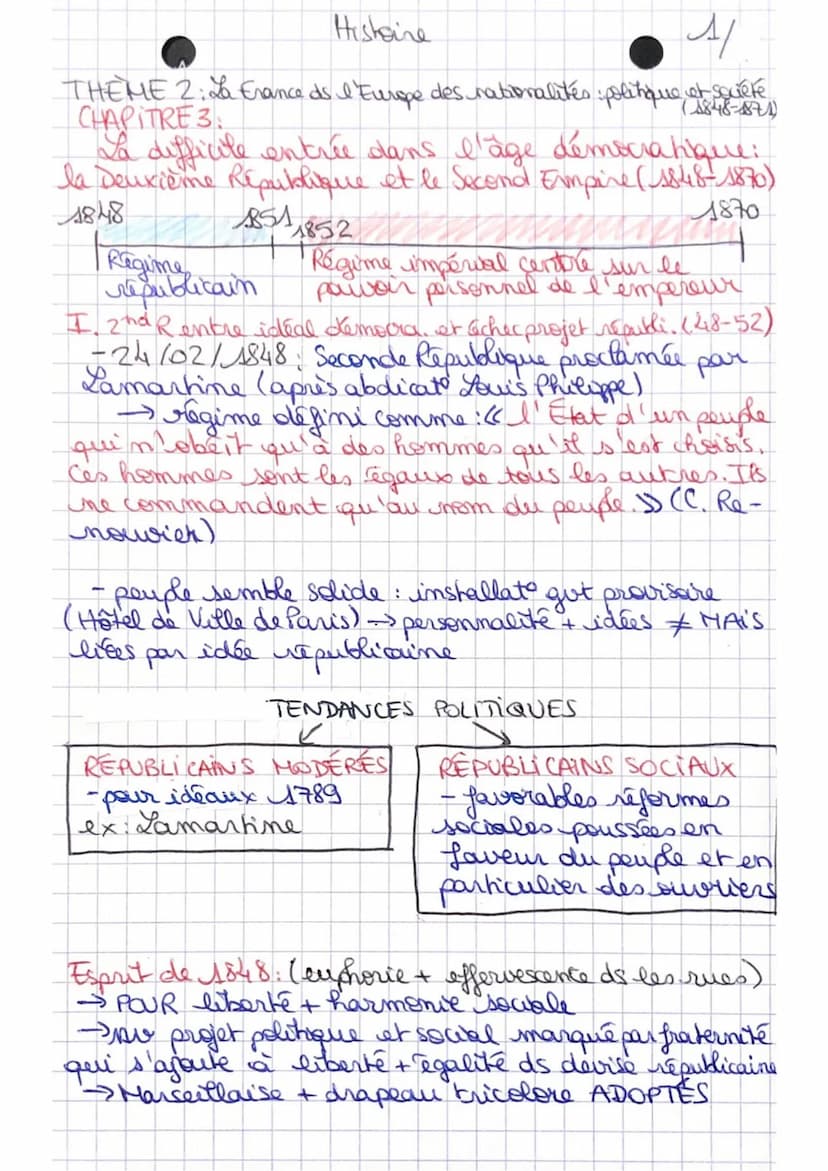 Histoire
1/
THÈME 2 : La France ds l'Europe des nationalités : politique et société
(1848-1871)
CHAPITRE 3 :
La difficile entrée dans l'âge démocratique :
la Deuxième République et le Second Empire (1848-1870)
1848 1851 1852 1870
Régime républicain
Régime impérial centré sur le
pouvoir personnel de l'empereur
I. 2nd R entre idéal démocra. et échec projet républi. (48-52)
- 24/02/1848 : Seconde République proclamée par
Lamartine (après abdicat° Louis Philippe)
→ régime défini comme : « l'État d'un peuple
qui n'obéit qu'à des hommes qu'il s'est choisis.
Ces hommes sont les égaux de tous les autres. Ils
ne commandent qu'au nom du peuple. » (C. Re-
nouvier)
- peuple semble solide : installat° gvt provisoire
(Hôtel de Ville de Paris) → personnalité + idées ≠ MAIS
liées par idée républicaine
TENDANCES POLITIQUES
RÉPUBLICAINS MODÉRÉS
- pour idéaux 1789
ex : Lamartine
RÉPUBLICAINS SOCIAUX
- favorables réformes
sociales poussées en
faveur du peuple et en
particulier des ouvriers
Esprit de 1848 : (euphorie + effervescence ds les rues)
→ POUR liberté + harmonie sociale
→ projet politique et social marqué par fraternité
qui s'ajoute à liberté + égalité ds devise républicaine
→ Marseillaise + drapeau tricolore ADOPTÉS